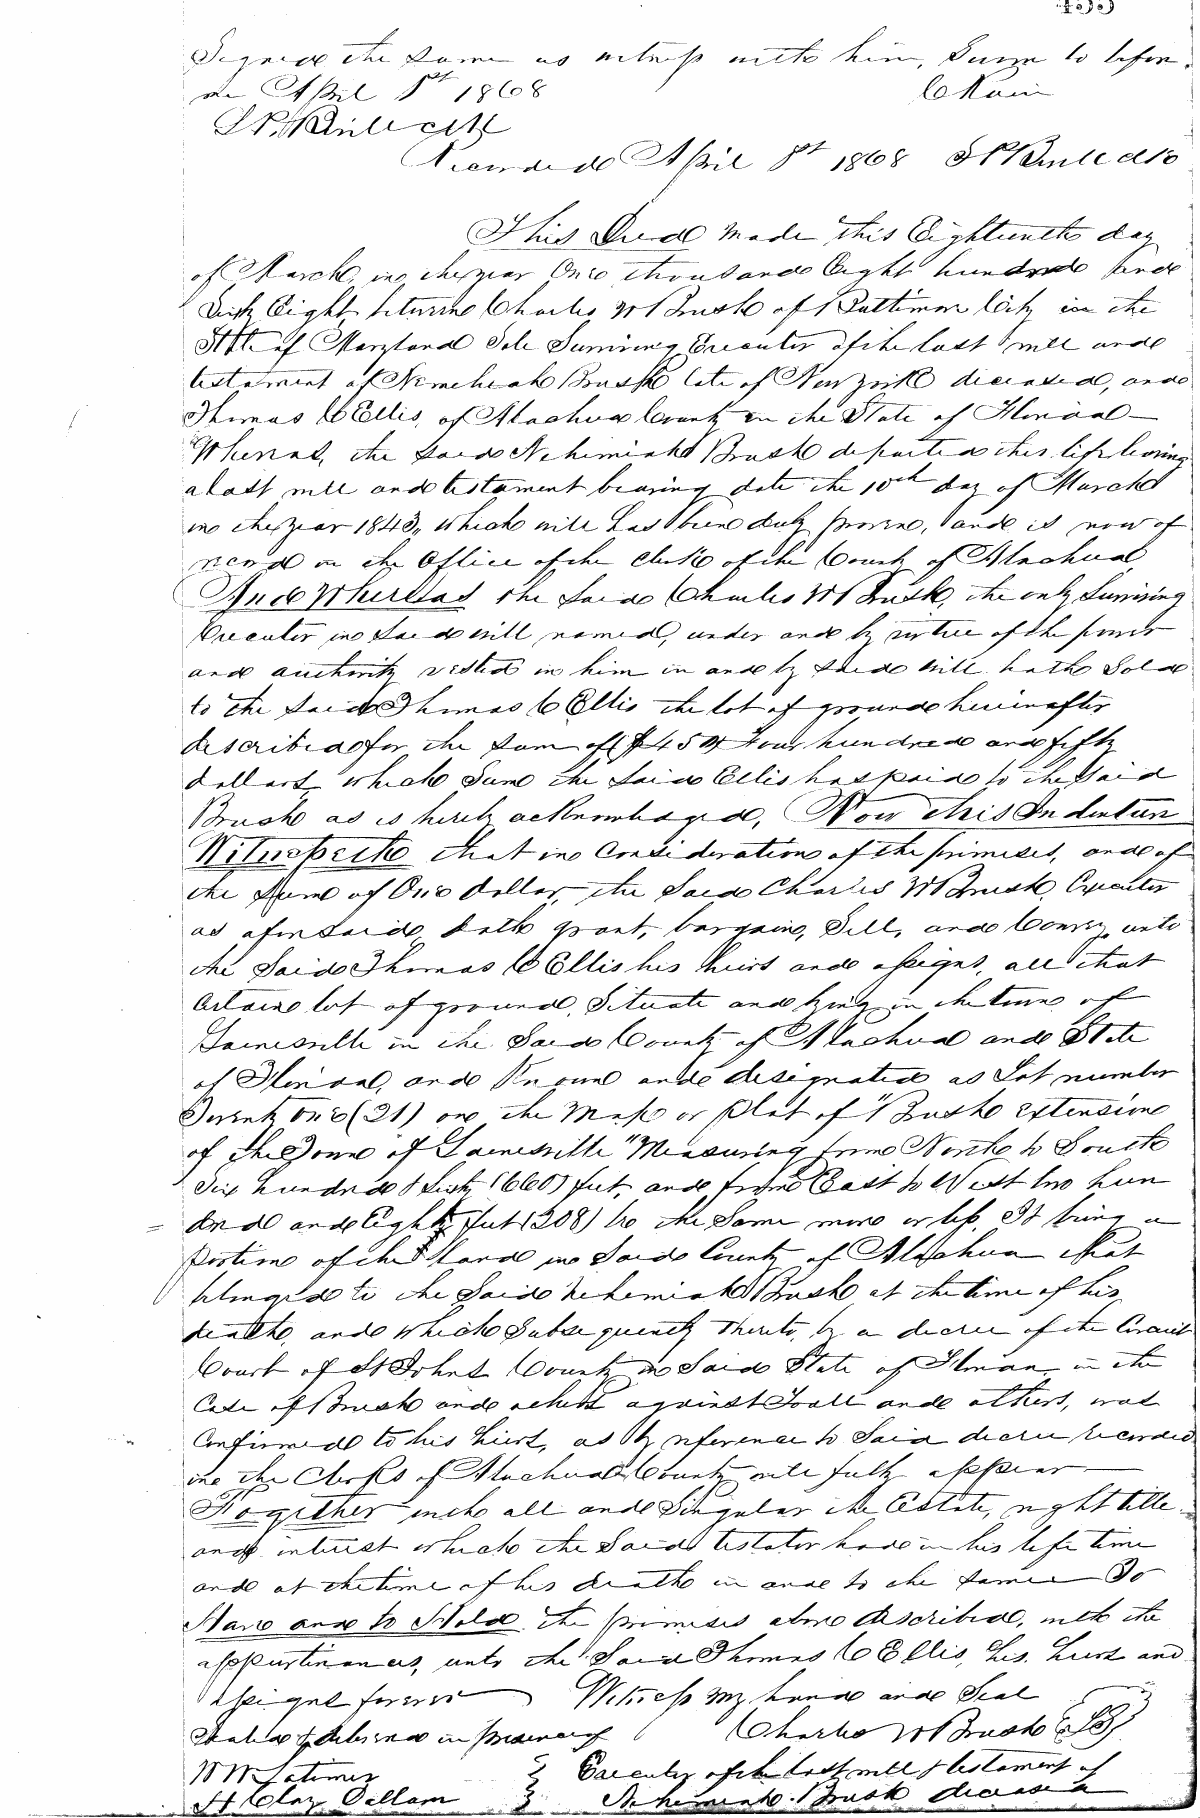 Signed the same as witness with him, Sworn to before
me April 8th 1868
Recorded April 8th 1868
This Deed made this Eighteenth day
of March in the year One thousand Eight hundred and
Sixty Eight between Charles W Brush of Baltimore City in the
State of Maryland Sole Surviving Executor of the last will and
testament of Nemehiah Brush late of New York deceased, and
Thomas C Ellis, of Alachua County in the State of Florida
Whereas, the said Nehemiah Brush departed this life leaving
a last will and testament bearing date the 10th day of March
in the year 1843, which will has been duly proven, and is now of
record in the Office of the Clerk of the County of Alachua
And Whereas the said Charles W Brush, the only Surviving
Executor in said will named, under and by virtue of the power
and authority vested in him in and by said will hath Sold
to the said Thomas C Ellis the lot of ground hereinafter
described for the sum of ($450) Four hundred and fifty
dollars, which sum the said Ellis has paid to the said
Brush as is hereby acknowledged, Now this Indenture
Witnesseth that in Consideration of the premises, and of
the sum of One dollar, the said Charles W Brush, Executor
as aforesaid, doth grant, bargain, Sell, and Convey, unto
the said Thomas C Ellis his heirs and assigns, all that
Certain lot of ground, Situate and lying in the town of
Gainesville in the said County of Alachua and State
of Florida, and Known and designated as Lot number
Twenty One (21) on the Map or plat of "Brush extension
of the Town of Gainesville" Measuring from North to South
Six hundred & Sixty (660) feet, and from East to West two hun
dred and Eight feet (208) be the same more or less, It being a
portion of the land in said County of Alachua that
belonged to the said Nehemiah Brush at the time of his
death, and which Subsequently thereto, by a decree of the Circuit
Court of St Johns County in said State of Florida in the
Case of Brush and others against and others, was
Confirmed to his heirs, as by reference to said decree recorded
in the Clerks of Alachua County will fully appear
Together with all and Singular the Estate, right title
and interest which the said testator had in his life time
and at the time of his death in and to the same To
Have and to Hold the premises above described, with the
appurtinances, unto the said Thomas C Ellis, his heirs and
assigns forever Witness my hand and Seal
Sealed & delivered in presence of Charles W Brush
W W Latimer Executor of the last will & testament of
H Clay Dallam Nehemiah Brush deceased